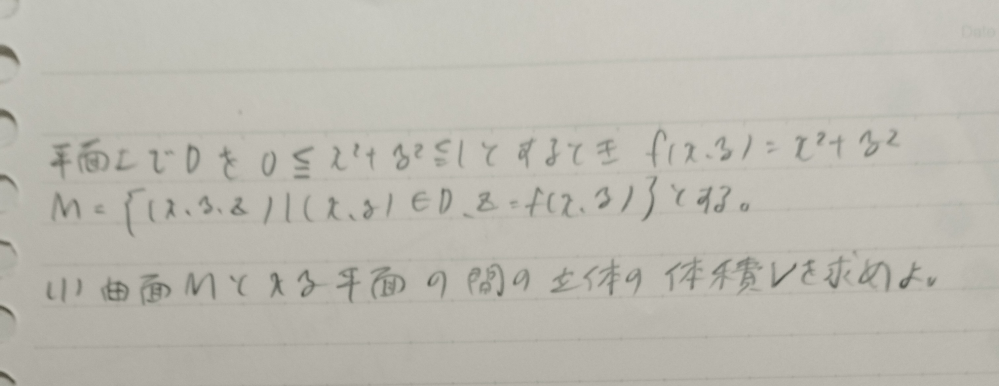 平面上でDを0≦x²+y²≦1とするとき f(x,y)=x²+y²
M={(x,y,z)|(x,y)∈D、z=f(x,y)}とする。
(1) 曲面Mとxy平面の間の立体の体積Vを求めよ。